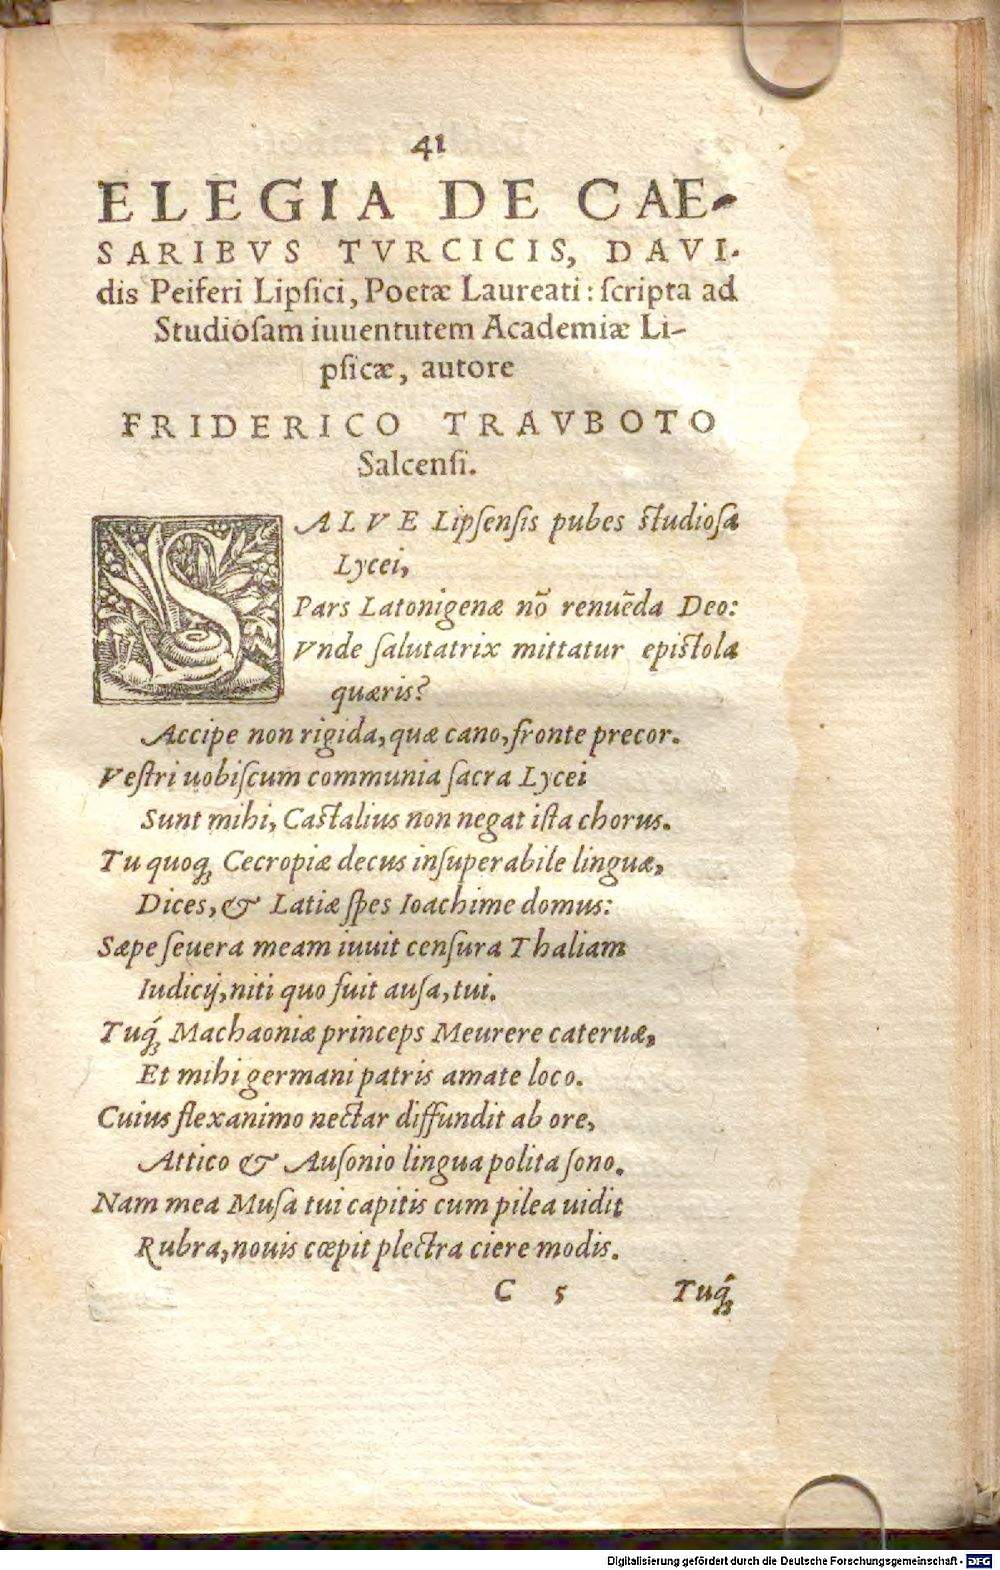 41
ELEGIA DE CAE-
SARIBVS TVRCICIS, DAVI-
dis Peiferi Lipſici, Poetæ Laureati: ſcripta ad
Studioſam iuuentutem Academiæ Li-
pſicæ, autore
FRIDERICO TRAVBOTO
Salcenſi.
SALVE Lipſenſis pubes ſtudioſa
Lycei,
Pars Latonigenæ nõ renuẽda Deo:
Vnde ſalutatrix mittatur epiſtola
quæris?
Accipe non rigida, quæ cano, fronte precor.
Veſtri uobiſcum communia ſacra Lycei
Sunt mihi, Caſtalius non negat iſta chorus.
Tu quoq; Cecropiæ decus inſuperabile linguæ,
Dices, & Latiæ ſpes Ioachime domus:
Sæpe ſeuera meam iuuit cenſura Thaliam
Iudicij, niti quo fuit auſa, tui.
Tuq́; Machaoniæ princeps Meurere cateruæ,
Et mihi germani patris amate loco.
Cuius flexanimo nectar diffundit ab ore,
Attico & Auſonio lingua polita ſono.
Nam mea Muſa tui capitis cum pilea uidit
Rubra, nouis cœpit plectra ciere modis.
C 5 Tuq́;
Digitalisierung gefördert durch die Deutsche Forschungsgemeinschaft - DFG